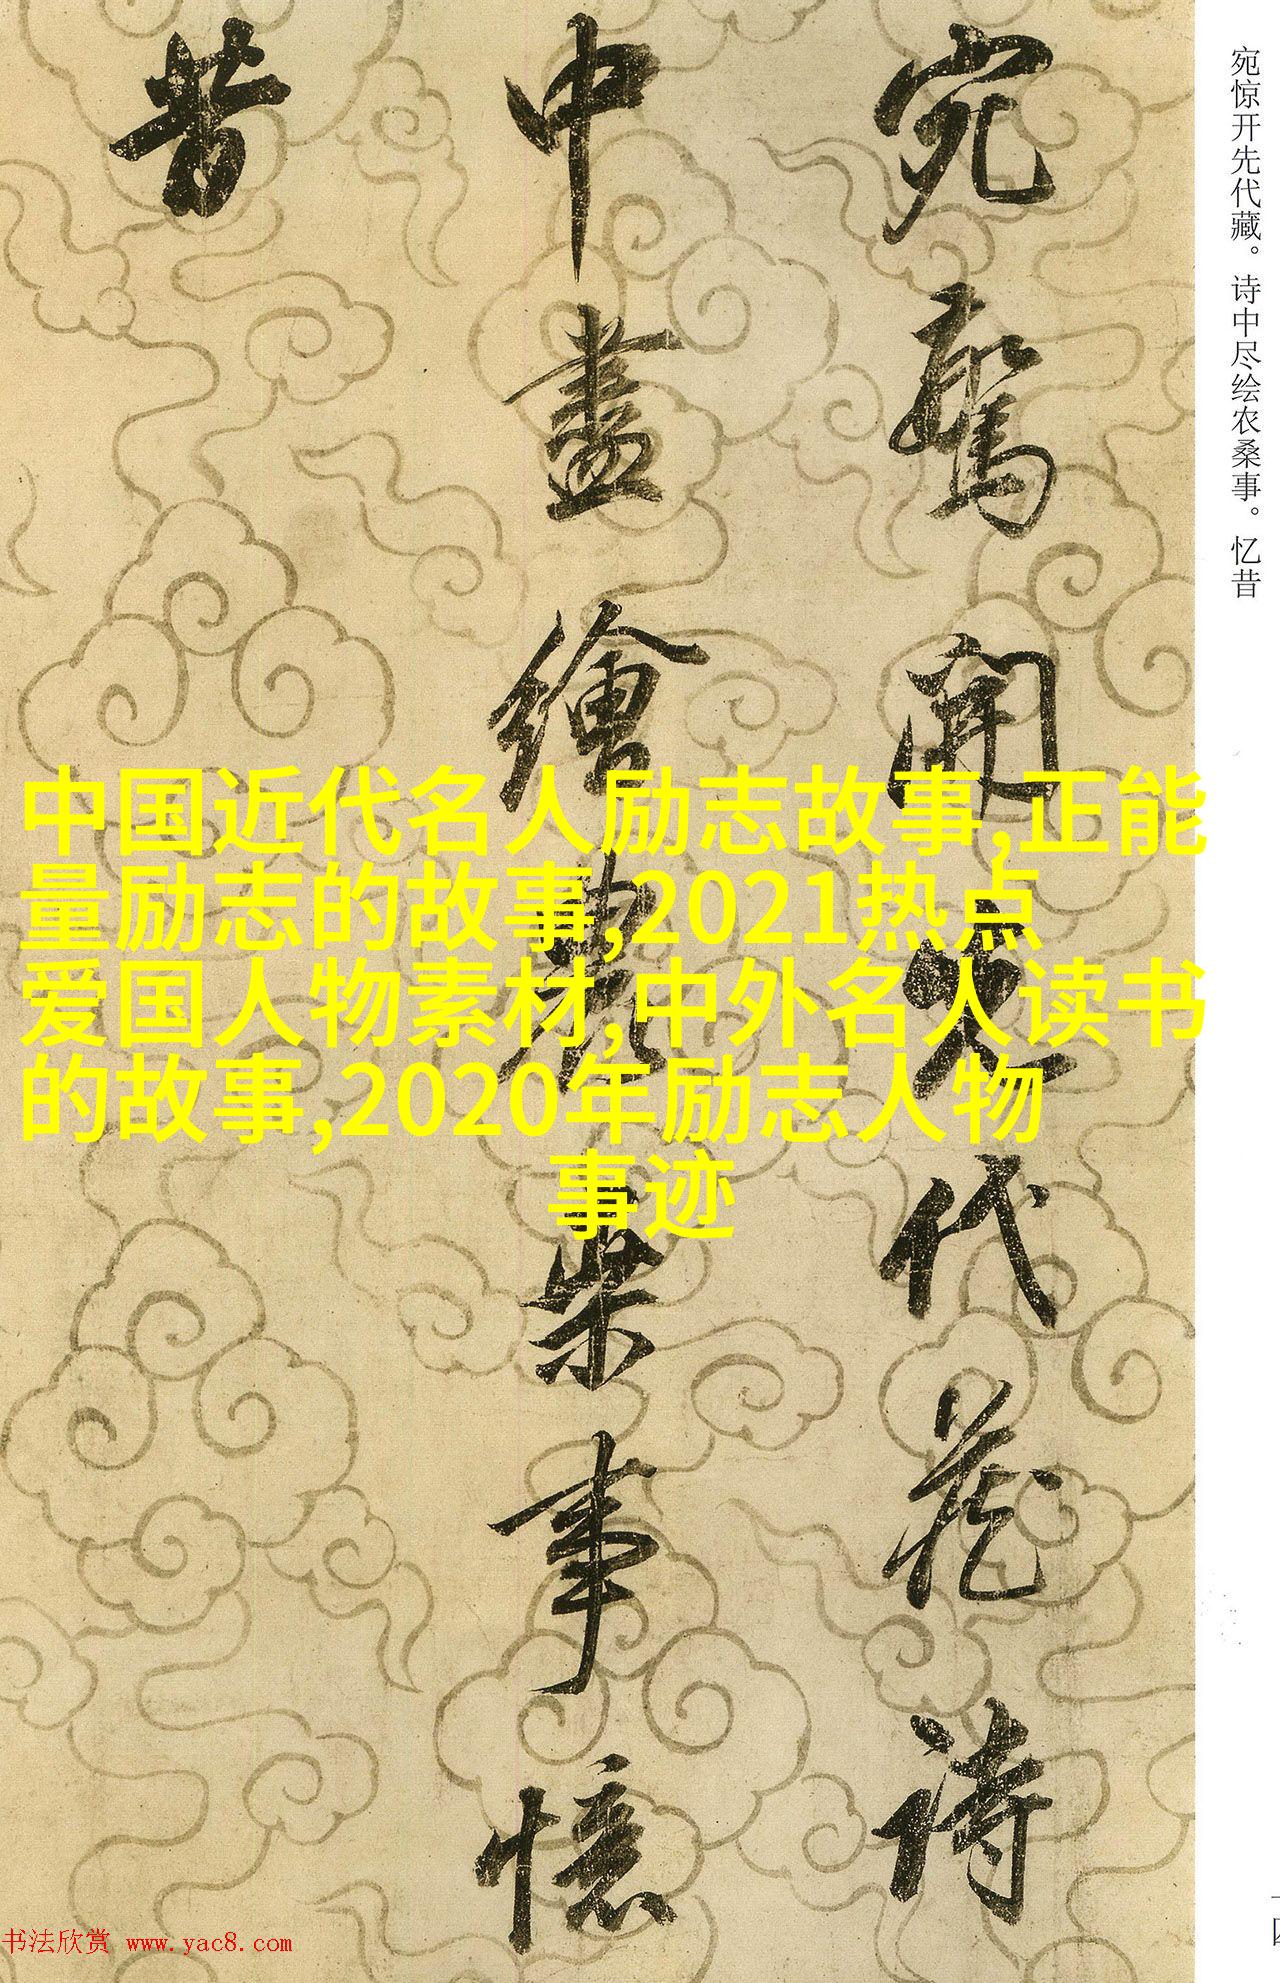 宛驚開先代藏詩
中盡繪農桒事憶
昔
宛惊开先代藏。诗中尽绘农桑事。忆昔
中国近代名人励志故事,正能
量励志的故事,2021热点
爱国人物素材,中外名人读书
的故事,2020年励志人物
事迹
书法欣赏 www.yac8.com